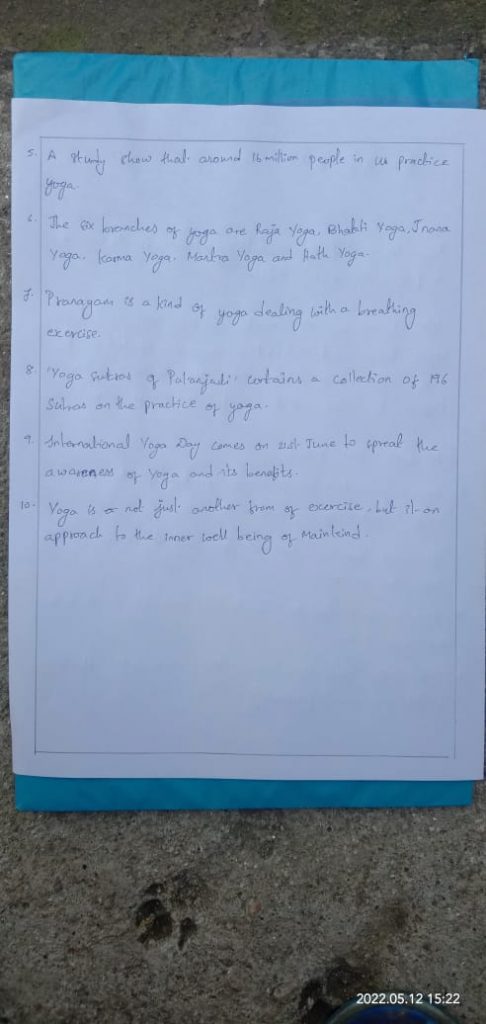 5. A study show that around 16 million people in us practice
yoga.
6. The six branches of yoga are Raja Yoga, Bhakti Yoga, Jnana
Yoga, Karma Yoga, Mantra Yoga and Hath Yoga.
7. Pranayam is a kind of yoga dealing with a breathing
exercise.
8. 'Yoga Sutras of Patanjali' contains a collection of 196
Sutras on the practice of yoga.
9. International Yoga Day comes on 21st June to spread the
awareness of Yoga and its benefits.
10. Yoga is not just another from of exercise, but it on
approach to the inner well being of Mainkind.
2022.05.12 15:22